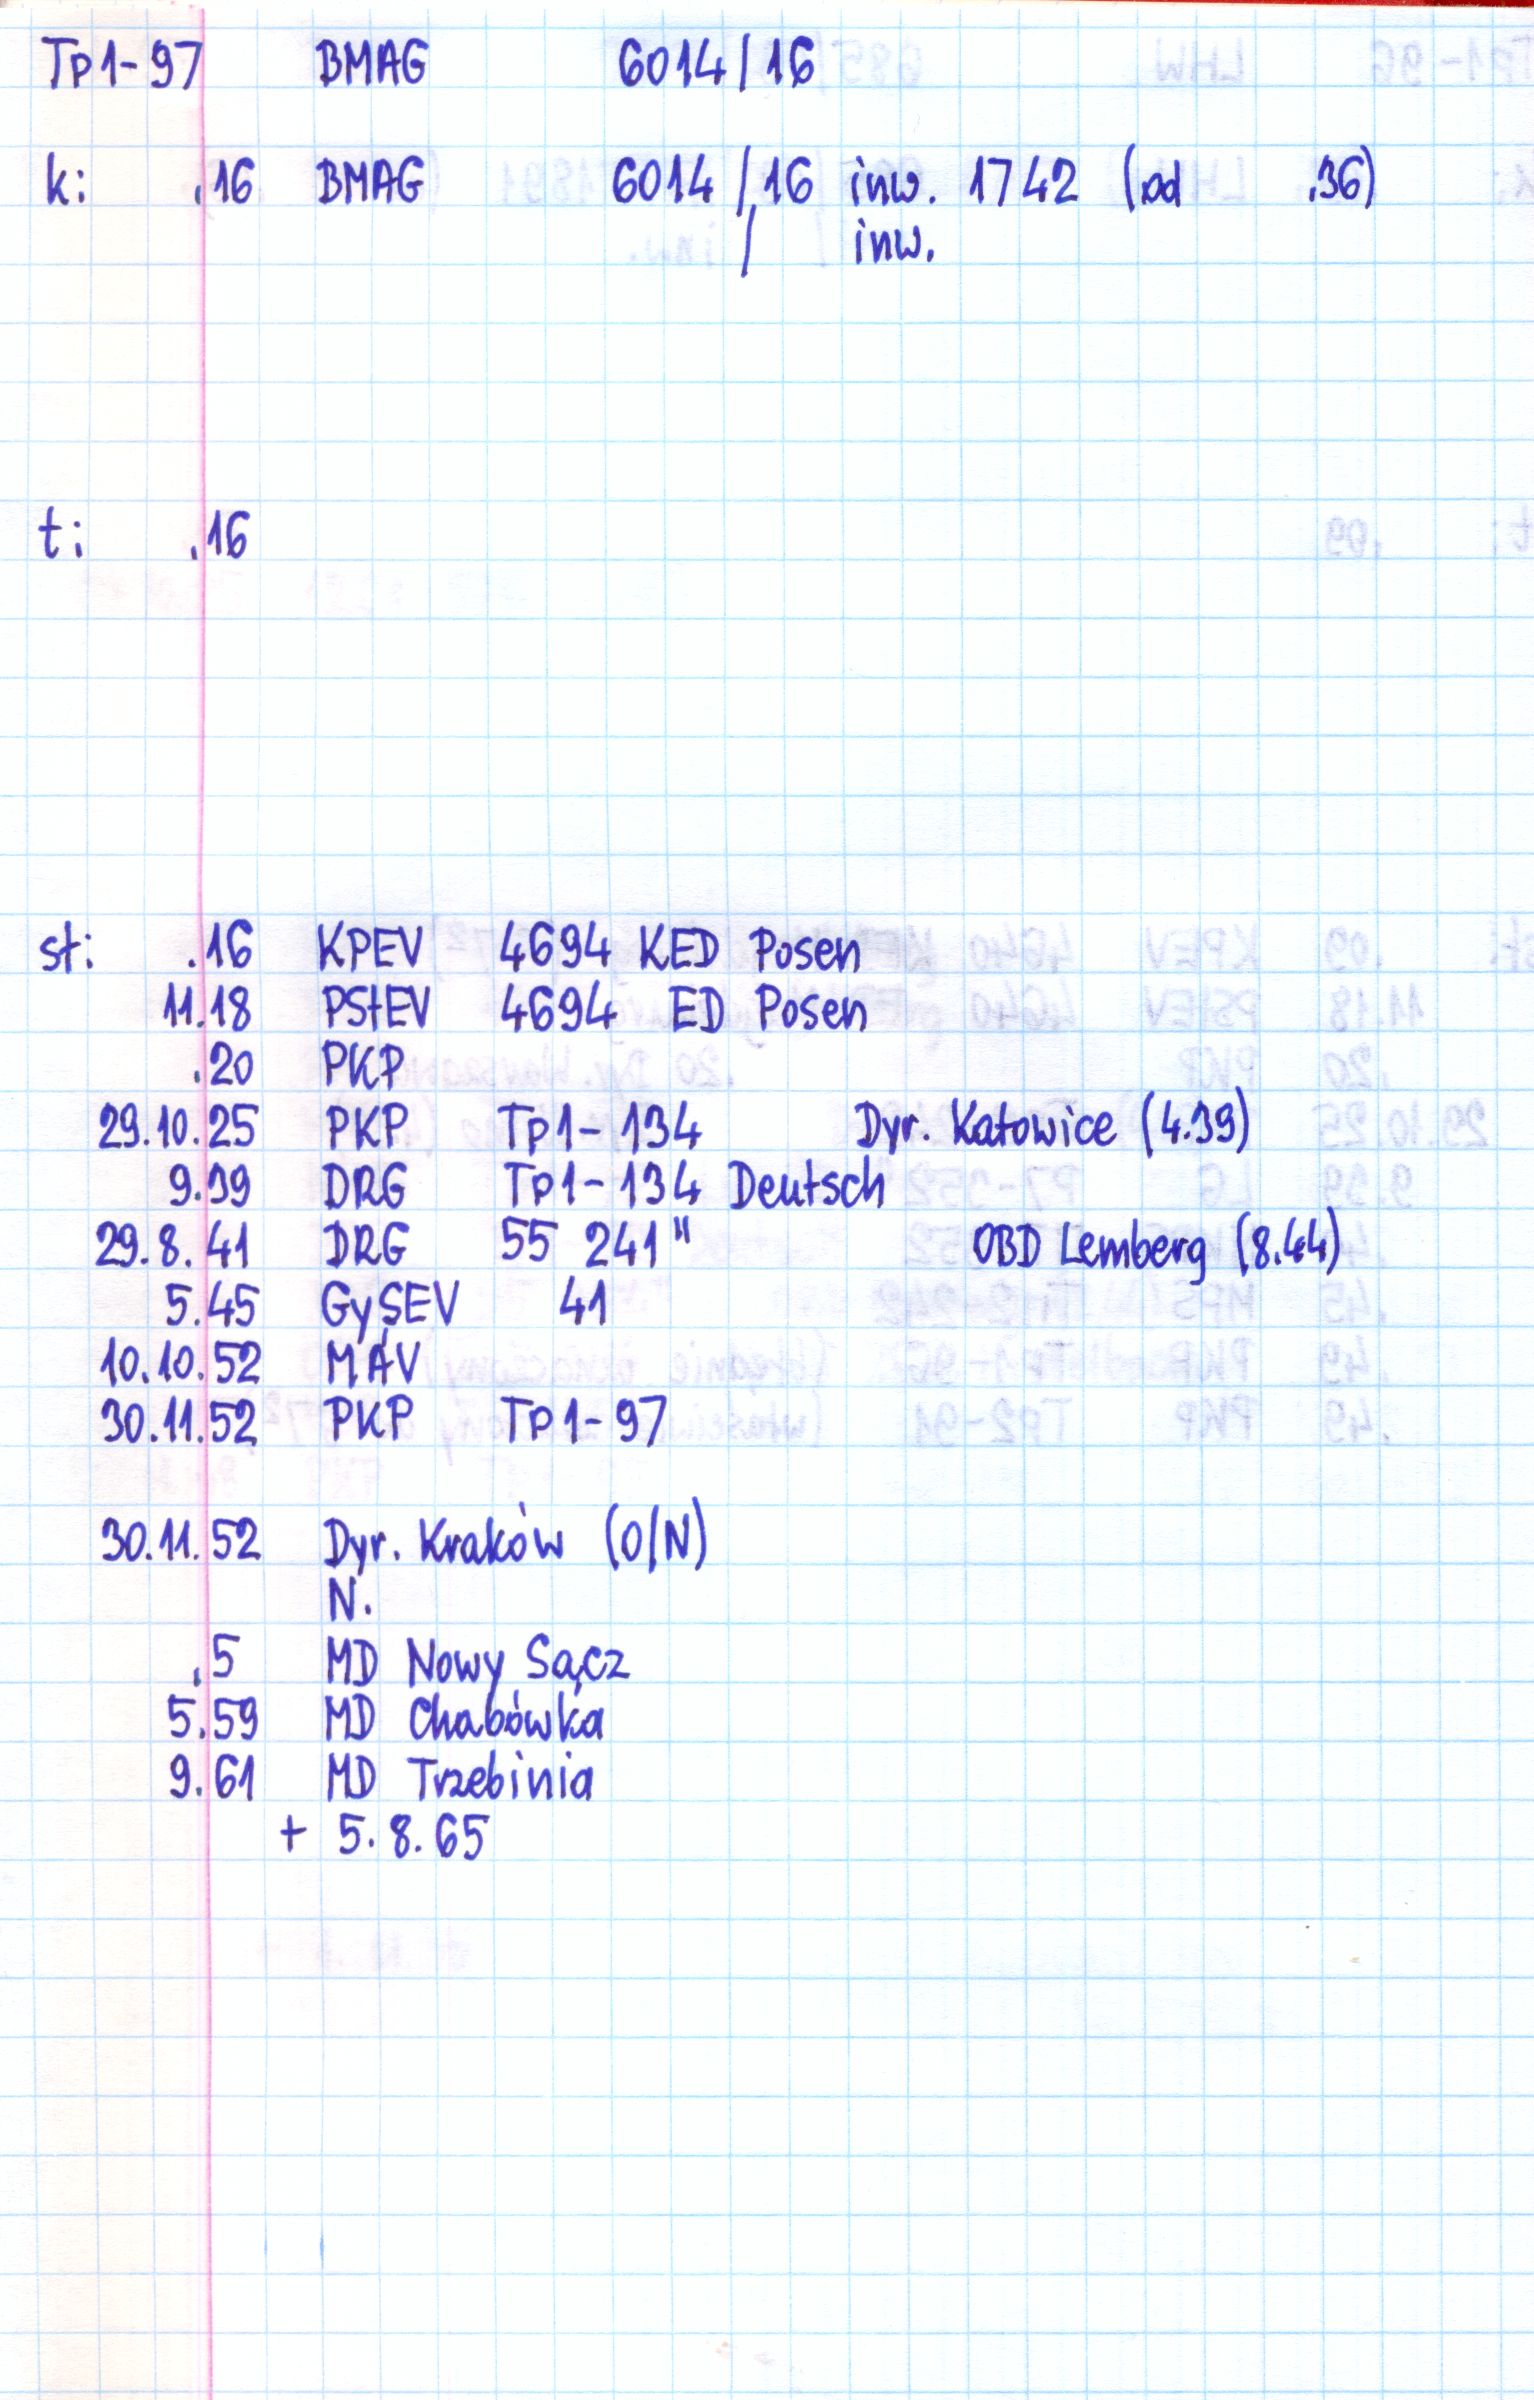 Tp1-97 BMAG 6014/16
k: .16 BMAG 6014/16 inw. 1742 (od .36)
/ inw.
t: .16
st: .16 KPEV 4694 KED Posen
11.18 PStEV 4694 ED Posen
.20 PKP
29.10.25 PKP Tp1-134 Dyr. Katowice (4.39)
9.39 DRG Tp1-134 Deutsch
29.8.41 DRG 55 241" OBD Lemberg (8.44)
5.45 GySEV 41
10.10.52 MÁV
30.11.52 PKP Tp1-97
30.11.52 Dyr. Kraków (O/N)
N.
.5 MD Nowy Sącz
5.59 MD Chabówka
9.61 MD Trzebinia
+ 5.8.65